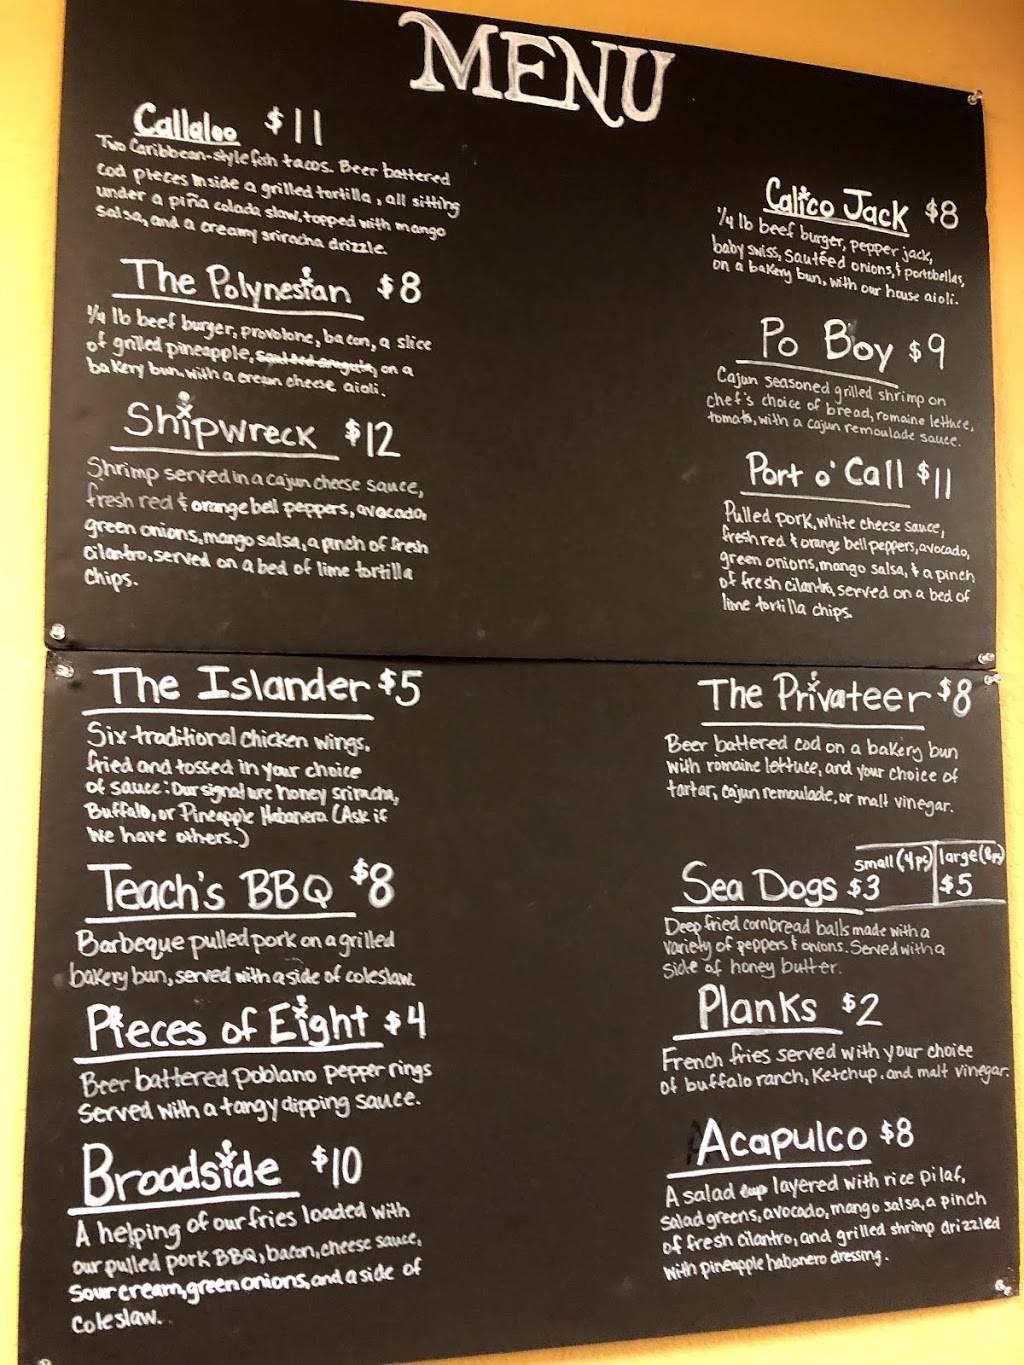 MENU
Callaloo $11
Two Caribbean-style fish tacos. Beer battered
cod pieces inside a grilled tortilla, all sitting
under a piña colada slaw, topped with mango
salsa, and a creamy sriracha drizzle.
The Polynesian $8
1/4 lb beef burger, provolone, bacon, a slice
of grilled pineapple, on a
bakery bun, with a cream cheese aioli.
Shipwreck $12
Shrimp served in a cajun cheese sauce,
fresh red & orange bell peppers, avocado,
green onions, mango salsa, a pinch of fresh
cilantro, served on a bed of lime tortilla
chips.
Calico Jack $8
1/4 lb beef burger, pepper jack,
baby swiss, sautéed onions, & portobellas,
on a bakery bun, with our house aioli.
Po Boy $9
Cajun seasoned grilled shrimp on
chef's choice of bread, romaine lettuce,
tomato, with a cajun remoulade sauce.
Port o' Call $11
Pulled pork, white cheese sauce,
fresh red & orange bell peppers, avocado,
green onions, mango salsa, & a pinch
of fresh cilantro, served on a bed of
lime tortilla chips.
The Islander $5
Six traditional chicken wings,
fried and tossed in your choice
of sauce: Our signature honey sriracha,
Buffalo, or Pineapple Habanero (Ask if
we have others.)
Teach's BBQ $8
Barbeque pulled pork on a grilled
bakery bun, served with a side of coleslaw.
Pieces of Eight $4
Beer battered poblano pepper rings
served with a tangy dipping sauce.
Broadside $10
A helping of our fries loaded with
our pulled pork BBQ, bacon, cheese sauce,
sour cream, green onions, and a side of
coleslaw.
The Privateer $8
Beer battered cod on a bakery bun
with romaine lettuce, and your choice of
tartar, cajun remoulade, or malt vinegar.
small (4pc) large (8pc)
Sea Dogs $3 $5
Deep fried cornbread balls made with a
variety of peppers & onions. Served with a
side of honey butter.
Planks $2
French fries served with your choice
of buffalo ranch, ketchup, and malt vinegar.
Acapulco $8
A salad cup layered with rice pilaf,
salad greens, avocado, mango salsa, a pinch
of fresh cilantro, and grilled shrimp drizzled
with pineapple habanero dressing.